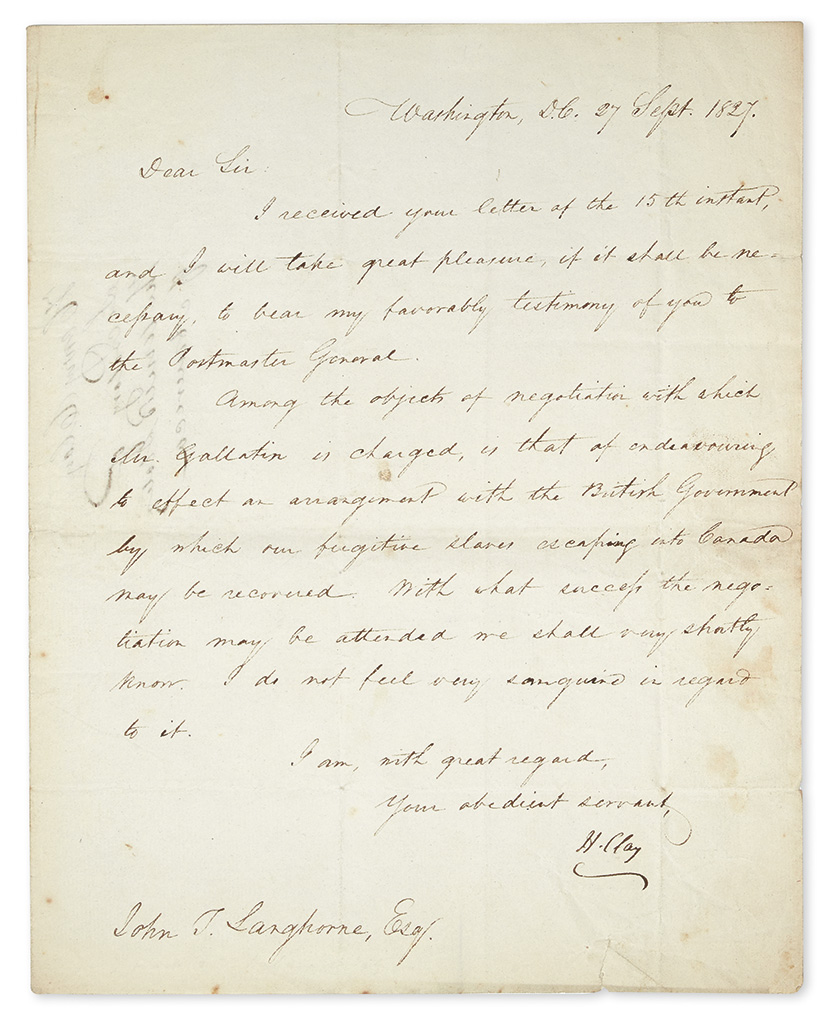 Washington, D.C. 27 Sept. 1827.
Dear Sir:
I received your letter of the 15th instant,
and I will take great pleasure, if it shall be ne-
cessary, to bear my favorably testimony of you to
the Postmaster General.
Among the objects of negotiation with which
Mr. Gallatin is charged, is that of endeavouring
to effect an arrangement with the British Government
by which our fugitive slaves escaping into Canada
may be recovered. With what success the nego-
tiation may be attended we shall very shortly
know. I do not feel very sanguine in regard
to it.
I am, with great regard,
Your obedient servant,
H. Clay
John T. Langhorne, Esq.